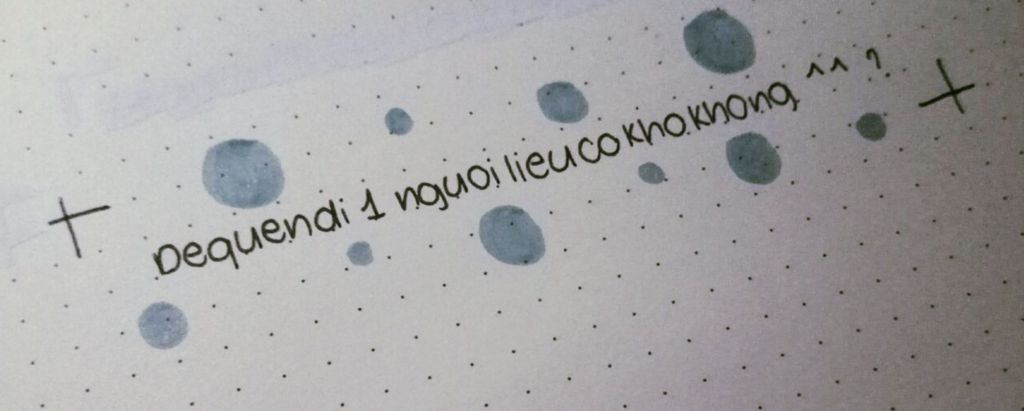 Dequendi 1 nguoi lieu co kho khong ^^ ?